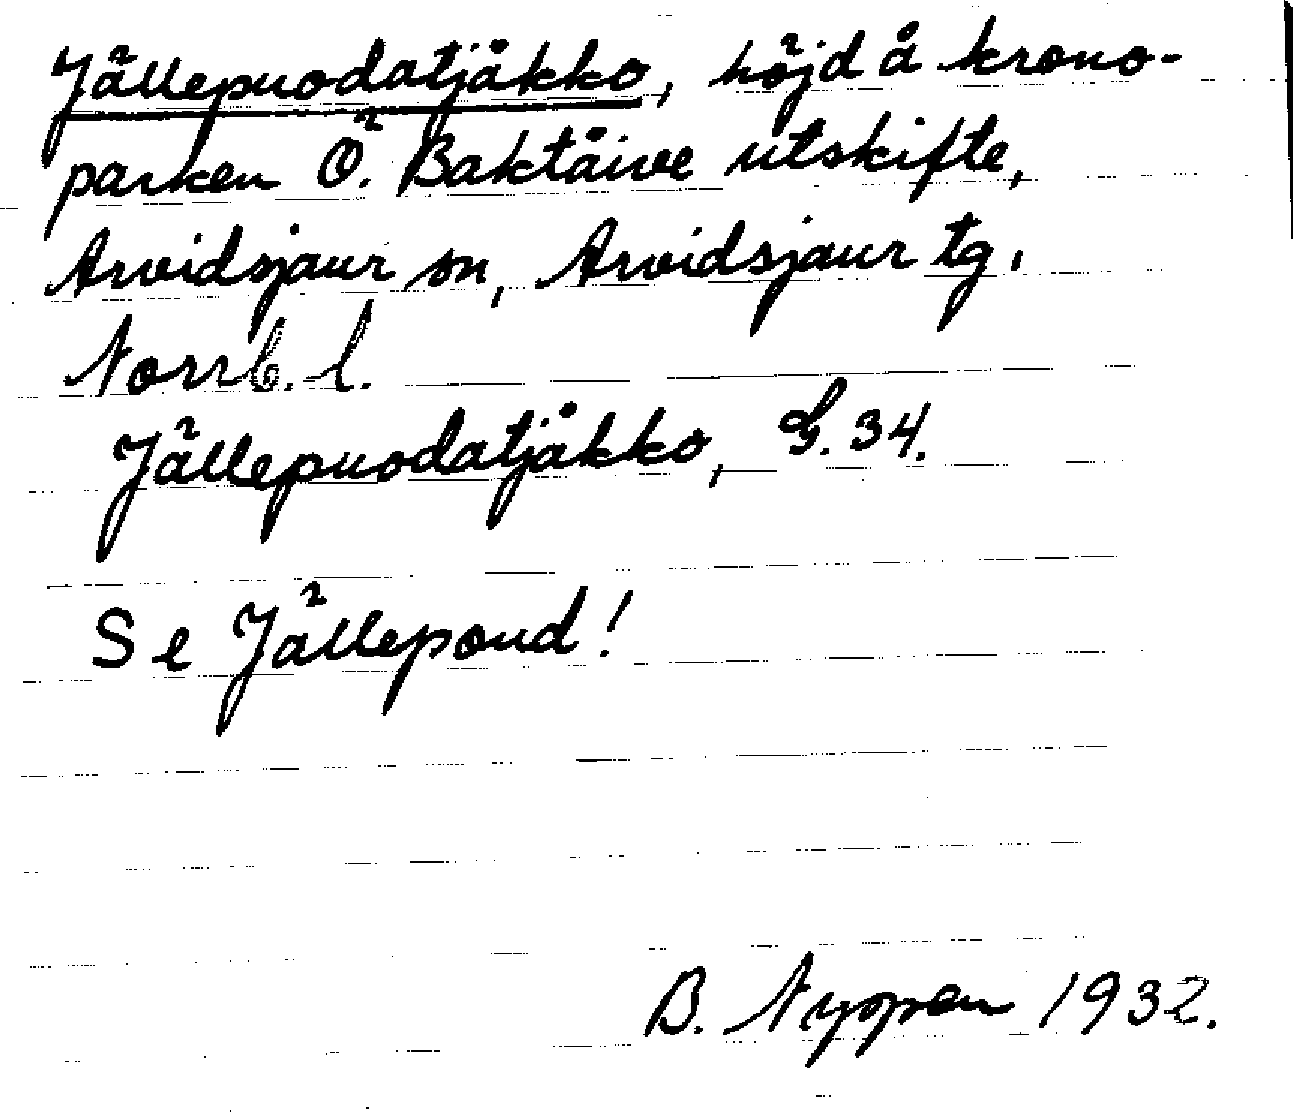 Jällepuodatjåkko, höjd å krono-
parken Ö. Baktåive utskifte,
Arvidsjaur sn, Arvidsjaur tg,
Norrb. l.
Jällepuodatjåkko, G. 34.
Se Jällepoud!
B. Nyppen 1932.